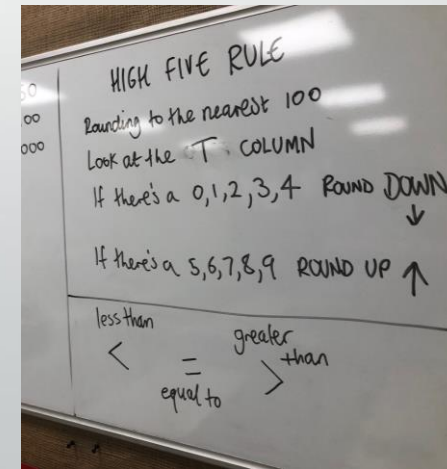 50
00
000
HIGH FIVE RULE
Rounding to the nearest 100
Look at the T COLUMN
If there's a 0,1,2,3,4 ROUND DOWN ↓
If there's a 5,6,7,8,9 ROUND UP ↑
less than
<
=
equal to
greater than
>